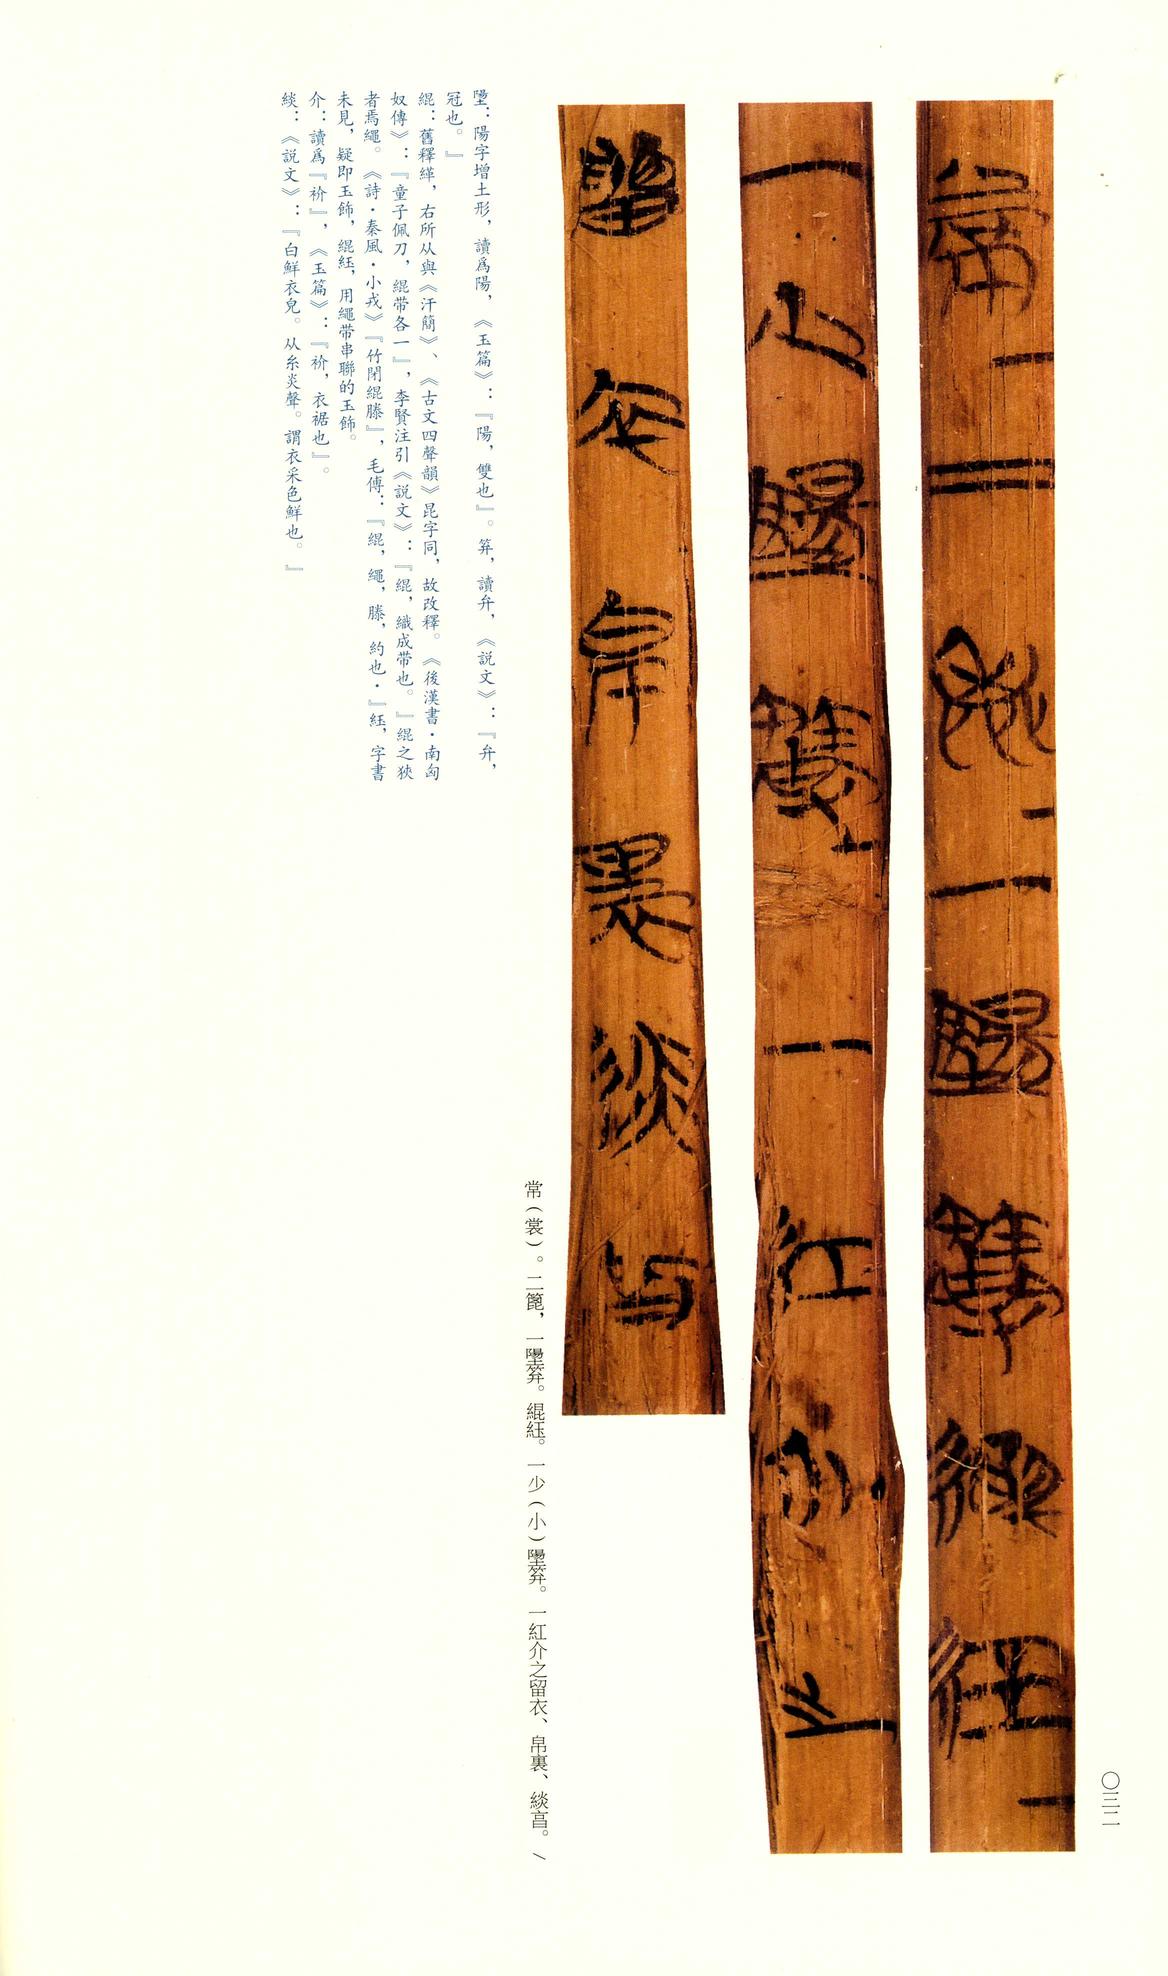 〇三二
常＝二䈞一𨼫𥫱緄䋕＝
一少𨼫𥫱＝一紅介之
留衣帛裏綊㫗
常（裳）。二䈞，一𨼫𥫱。緄䋕。一少（小）𨼫𥫱。一紅介之留衣、帛裏、緂㫗。／
陽字增土形，讀爲陽，《玉篇》：『陽，雙也』。讀弁，《説文》：『弁，
冠也。』
緄：舊釋緙，右所从與《汗簡》、《古文四聲韻》昆字同，故改釋。《後漢書·南匈
奴傳》：『童子佩刀，緄带各一』，李賢注引《説文》：『緄，織成带也。』緄之狹
者爲繩。《詩·秦風·小戎》『竹閉緄縢』，毛傳：『緄，繩，縢，約也·』䋕，字書
未見，疑即玉飾，緄䋕，用繩带串聯的玉飾。
介：讀爲『衸』，《玉篇》：『衸，衣裾也』。
緂：《説文》：『白鮮衣皃。从糸炎聲。謂衣采色鮮也。』